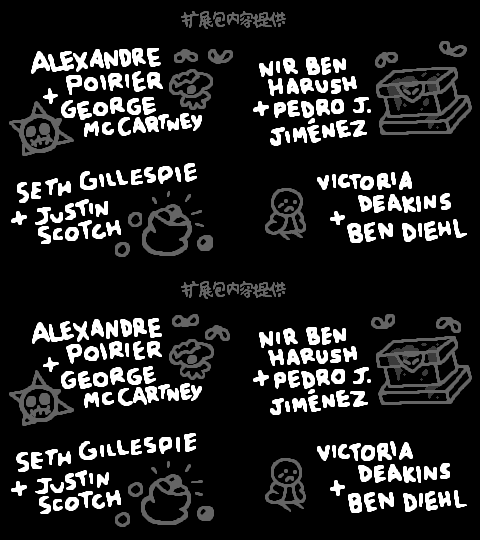 扩展包内容提供
ALEXANDRE
POIRIER
+ GEORGE
MCCARTNEY
NIR BEN
HARUSH
+ PEDRO J.
JIMÉNEZ
SETH GILLESPIE
+ JUSTIN
SCOTCH
VICTORIA
DEAKINS
+
BEN DIEHL
扩展包内容提供
ALEXANDRE
POIRIER
+ GEORGE
MCCARTNEY
NIR BEN
HARUSH
+ PEDRO J.
JIMÉNEZ
SETH GILLESPIE
+ JUSTIN
SCOTCH
VICTORIA
DEAKINS
+
BEN DIEHL